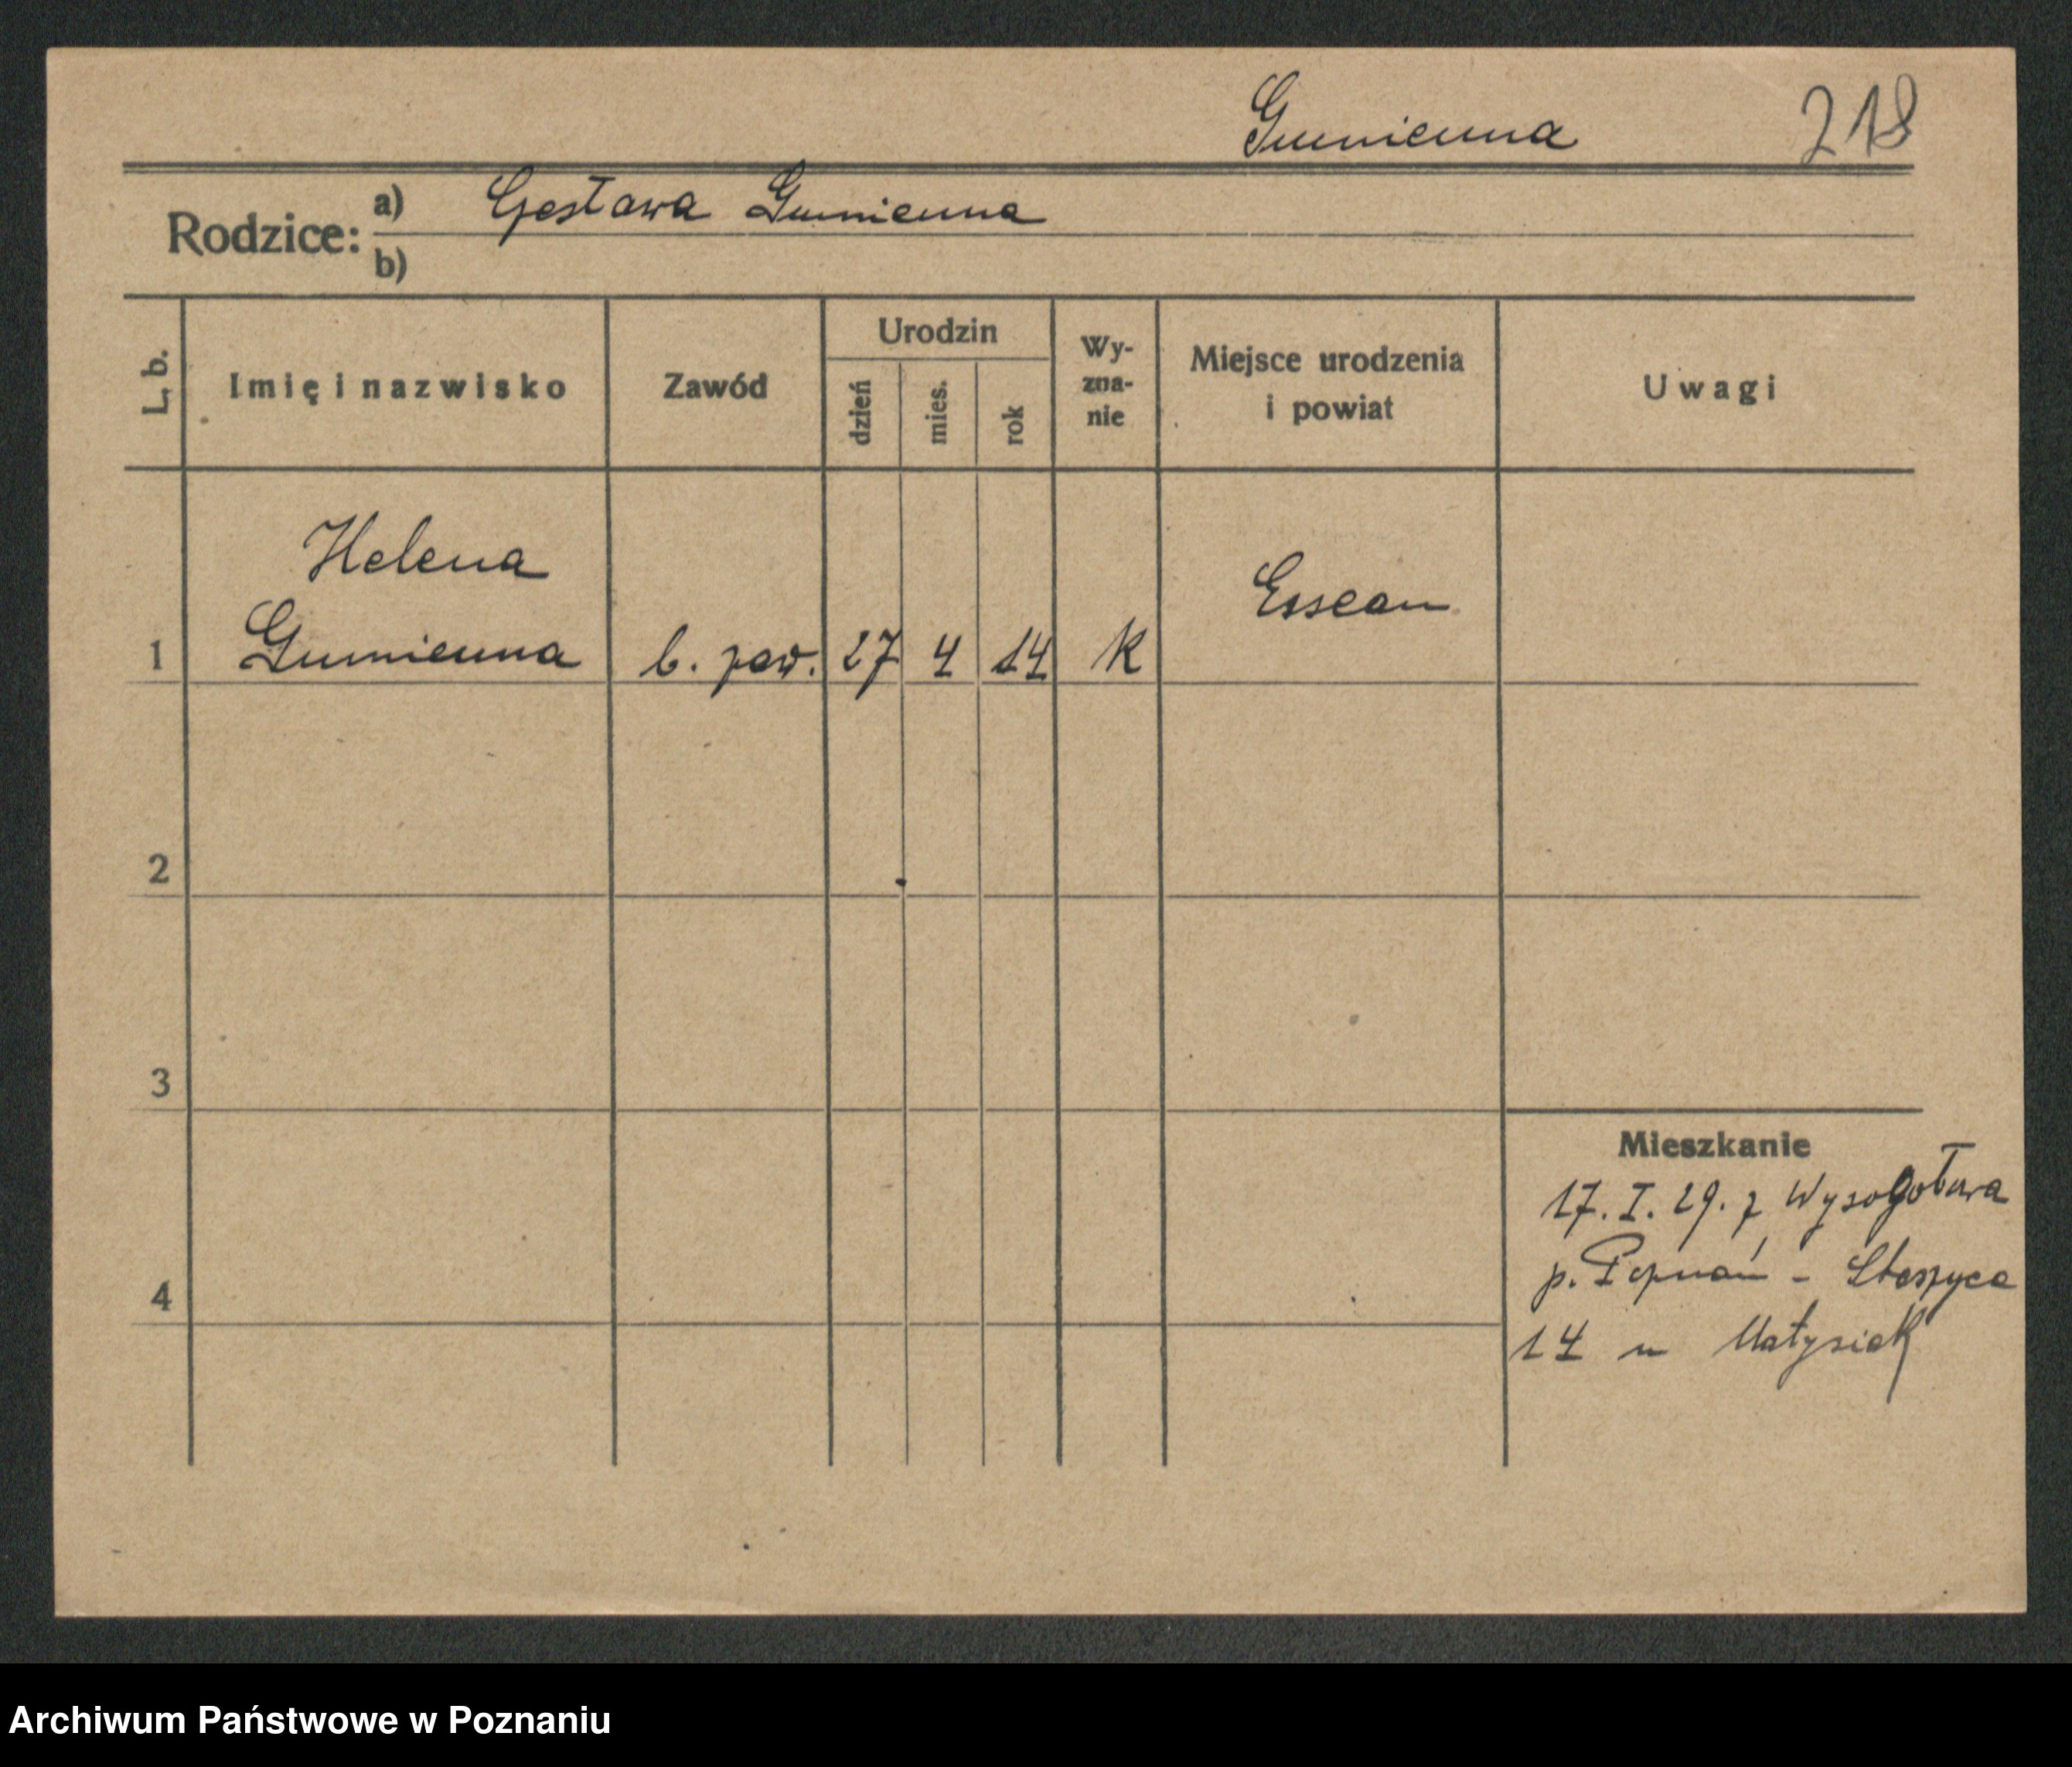 Gumienna 218
Rodzice: a) Czesława Gumienna
b)
L. b. Imię i nazwisko Zawód Urodzin dzień mies. rok Wyznanie Miejsce urodzenia i powiat Uwagi
Helena
1 Gumienna b. zaw. 27 4 14 K Essean
2
3
4
Mieszkanie
17. I. 29. z Wysogotowa
p. Poznań - Staszyca
14 u Matysiak
Archiwum Państwowe w Poznaniu